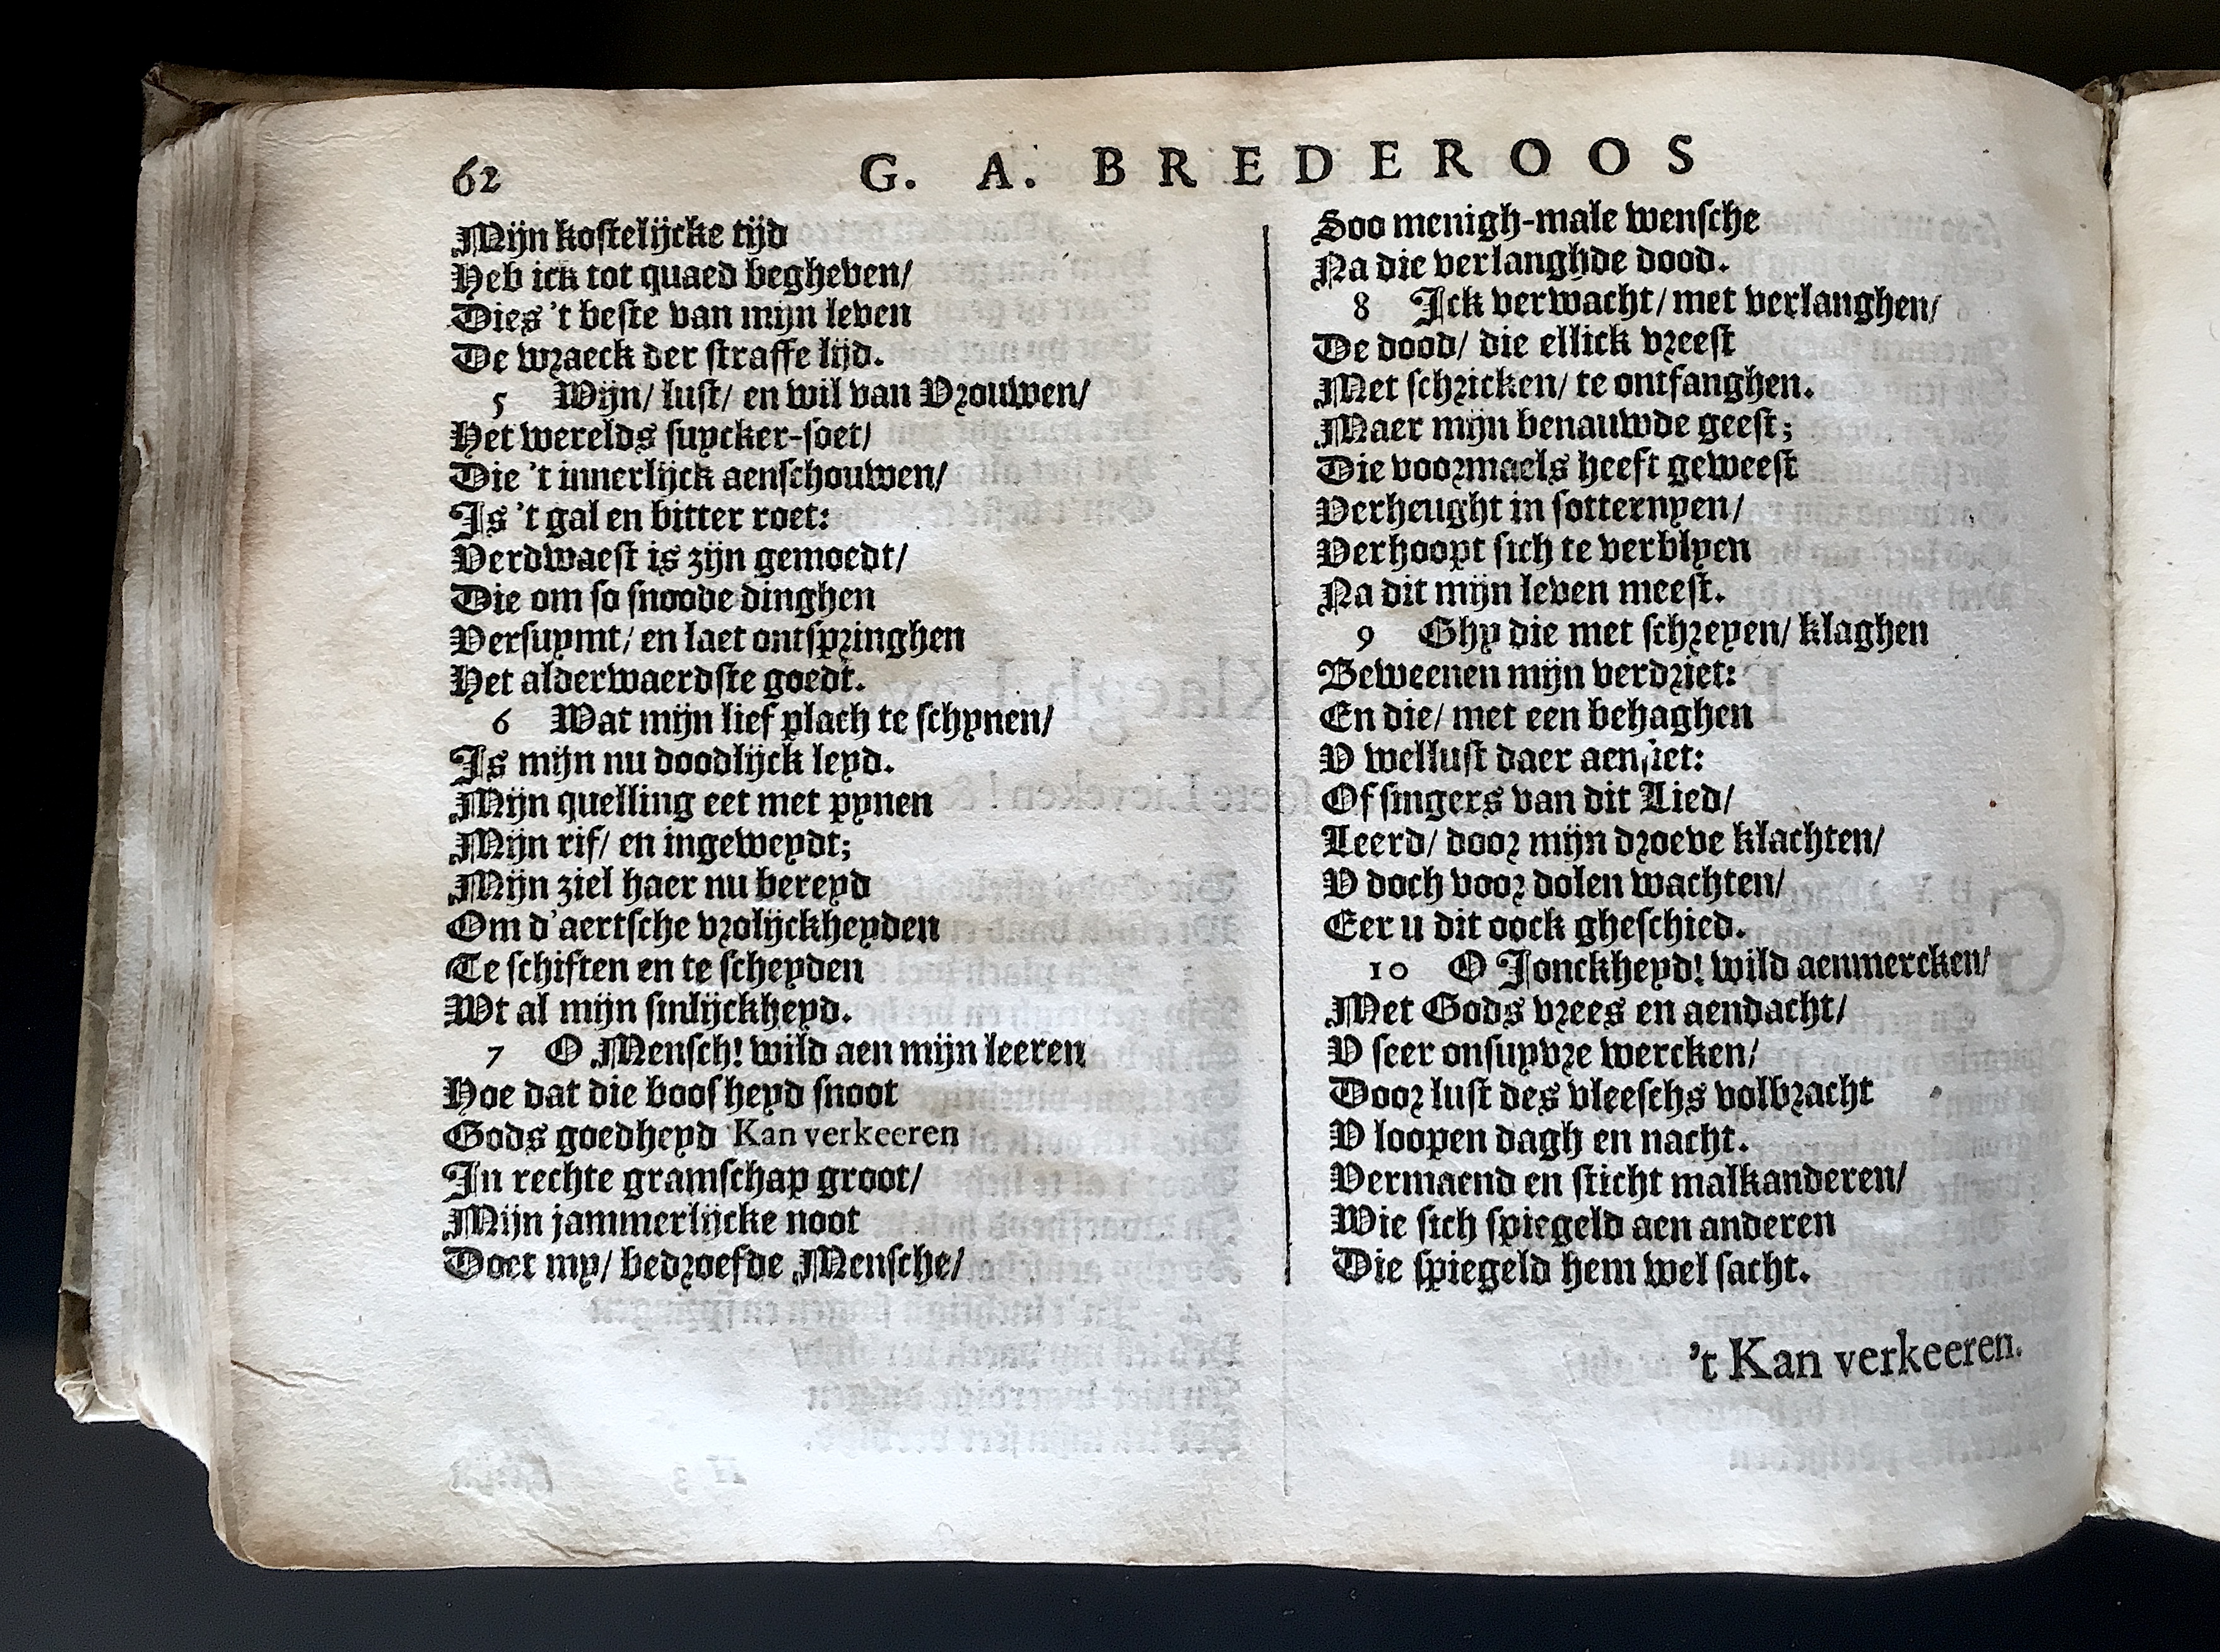 62
G. A. BREDEROOS
Mijn kostelijcke tijd
Heb ick tot quaed begheven/
Dies 't beste van mijn leven
De wraeck der straffe lijd.
5 Wijn/ lust/ en wil van Vrouwen/
Het werelds suycker-soet/
Die 't innerlijck aenschouwen/
Is 't gal en bitter roet:
Verdwaest is zijn gemoedt/
Die om so snoode dinghen
Versuymt/ en laet ontspringhen
Het alderwaerdste goedt.
6 Wat mijn lief plach te schynen/
Is mijn nu doodlijck leyd.
Mijn quelling eet met pynen
Mijn rif/ en ingeweydt;
Mijn ziel haer nu bereyd
Om d'aertsche vrolijckheyden
Te schiften en te scheyden
Wt al mijn sinlijckheyd.
7 O Mensch! wild aen mijn leeren
Hoe dat die boosheyd snoot
Gods goedheyd Kan verkeeren
In rechte gramschap groot/
Mijn jammerlijcke noot
Doet my/ bedroefde Mensche/
Soo menigh-male wensche
Na die verlanghde dood.
8 Ick verwacht/ met verlanghen/
De dood/ die ellick vreest
Met schricken/ te ontfanghen.
Maer mijn benauwde geest;
Die voormaels heeft geweest
Verheught in sotternyen/
Verhoopt sich te verblyen
Na dit mijn leven meest.
9 Ghy die met schreyen/ klaghen
Beweenen mijn verdriet:
En die/ met een behaghen
V wellust daer aen siet:
Of singers van dit Lied/
Leerd/ door mijn droeve klachten/
V doch voor dolen wachten/
Eer u dit oock gheschied.
10 O Jonckheyd! wild aenmercken/
Met Gods vrees en aendacht/
V seer onsuyvre wercken/
Door lust des vleeschs volbracht
V loopen dagh en nacht.
Vermaend en sticht malkanderen/
Wie sich spiegeld aen anderen
Die spiegeld hem wel sacht.
't Kan verkeeren.